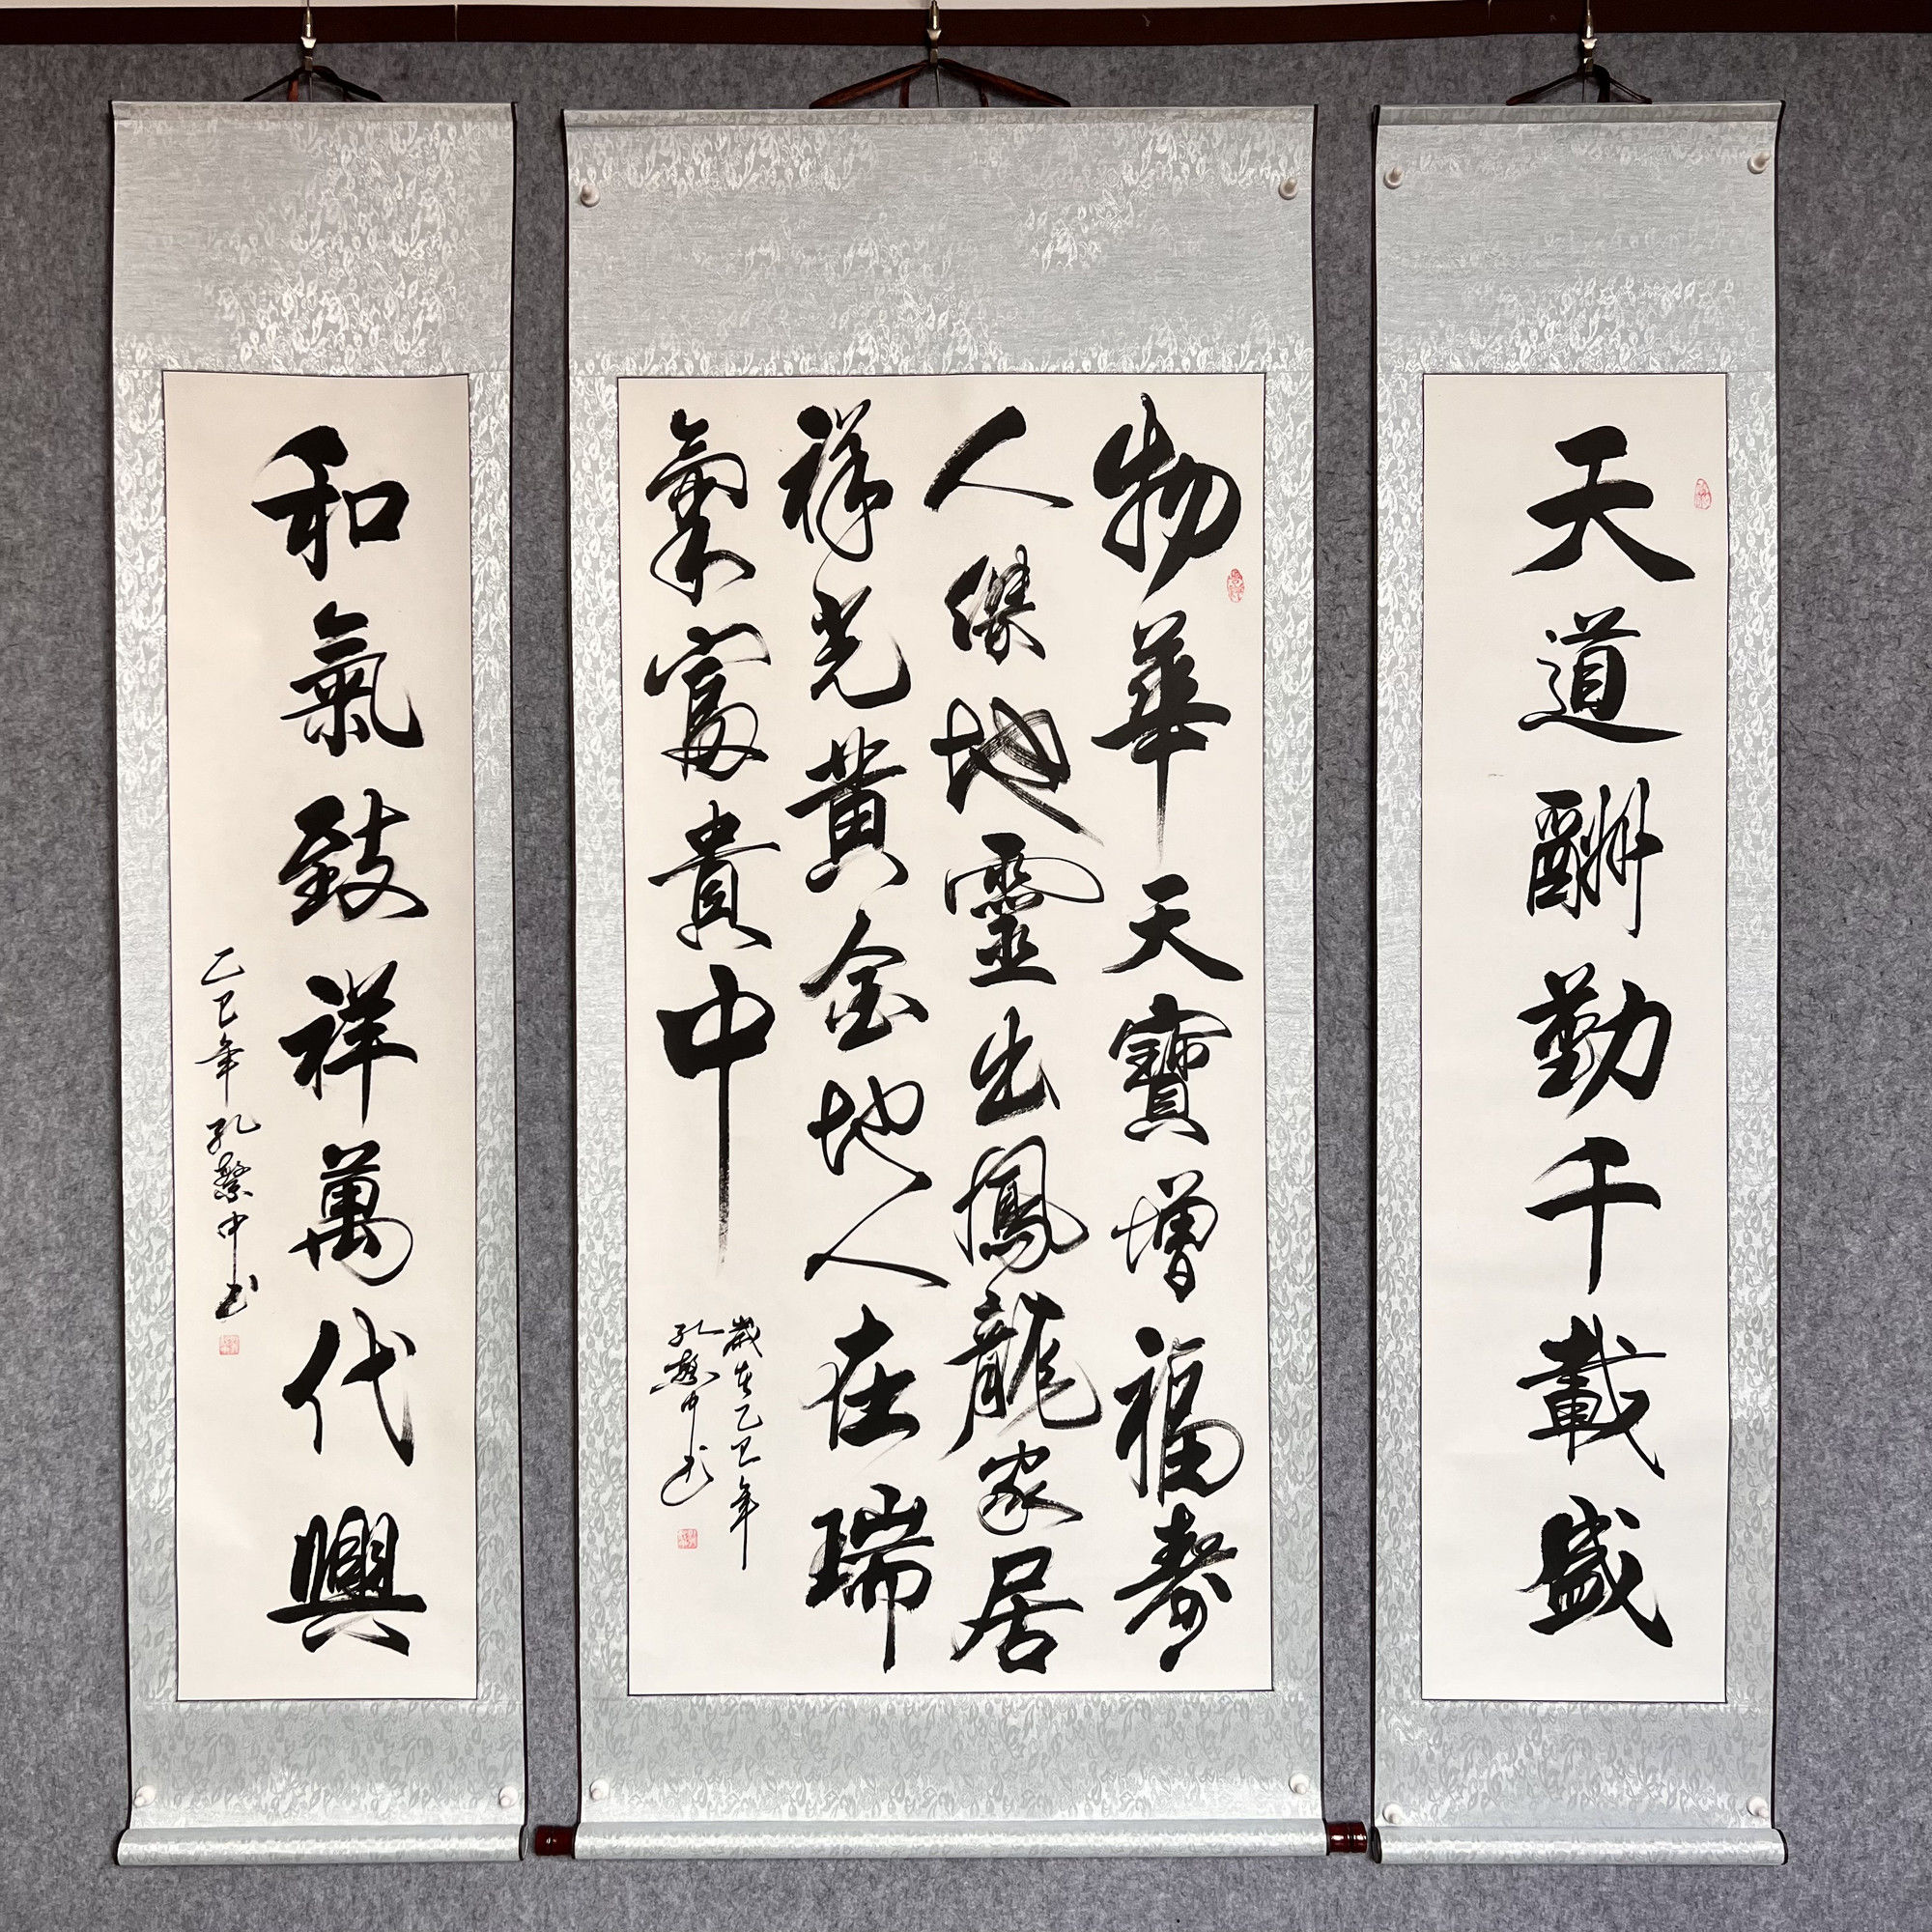 天道酬勤千載盛
物華天寶增福壽
人傑地靈出鳳龍家居
祥光黃金地人在瑞
氣富貴中
歲在乙巳年
孔繁中书
和氣致祥萬代興
乙巳年孔繁中书